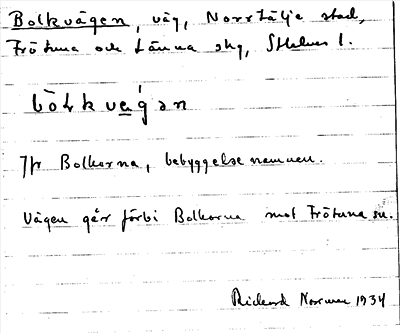 Bolkvägen, väg, Norrtälje stad,
Frötuna och Länna skg, Sthlms l.
bòɫkvęǵən
Jfr Bolkorna, bebyggelsenamnen.
Vägen går förbi Bolkorna mot Frötuna sn.
Rickard Norman 1934